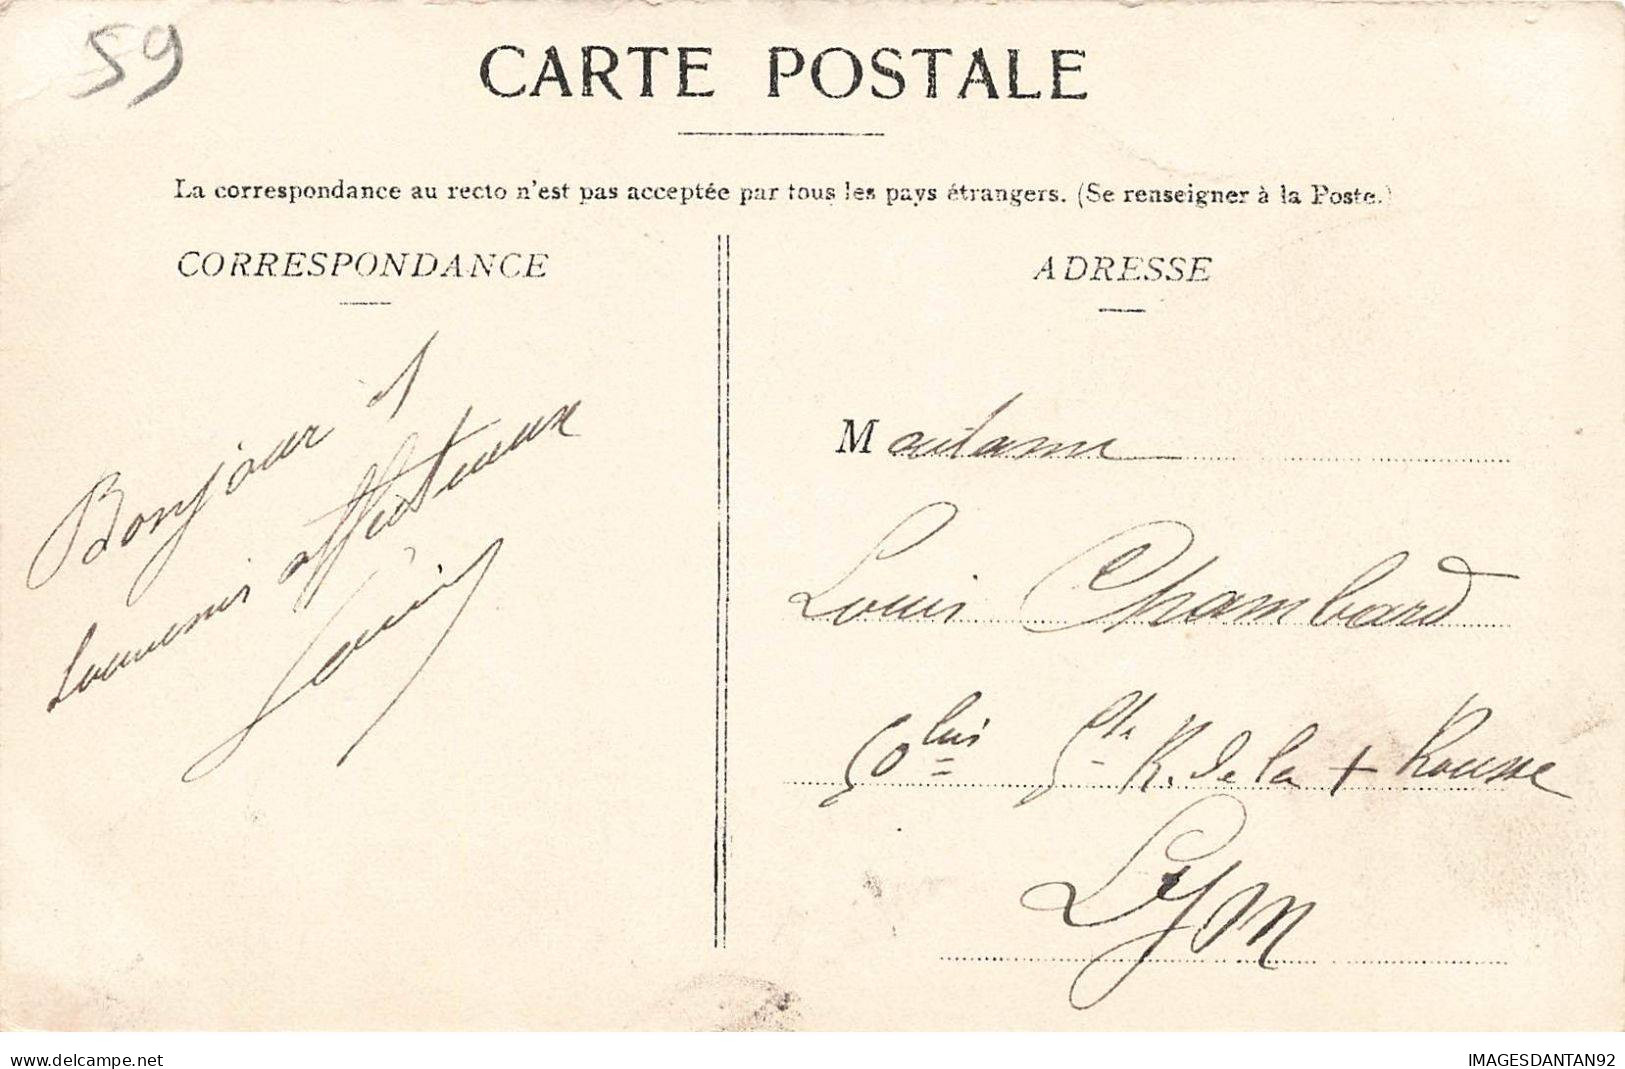 59
CARTE POSTALE
La correspondance au recto n'est pas acceptée par tous les pays étrangers. (Se renseigner à la Poste.)
CORRESPONDANCE
ADRESSE
Bonjour &
souvenir affectueux
Madame
Louis Chambard
50 bis Gde R. de la + Rousse
Lyon
www.delcampe.net
IMAGESDANTAN92